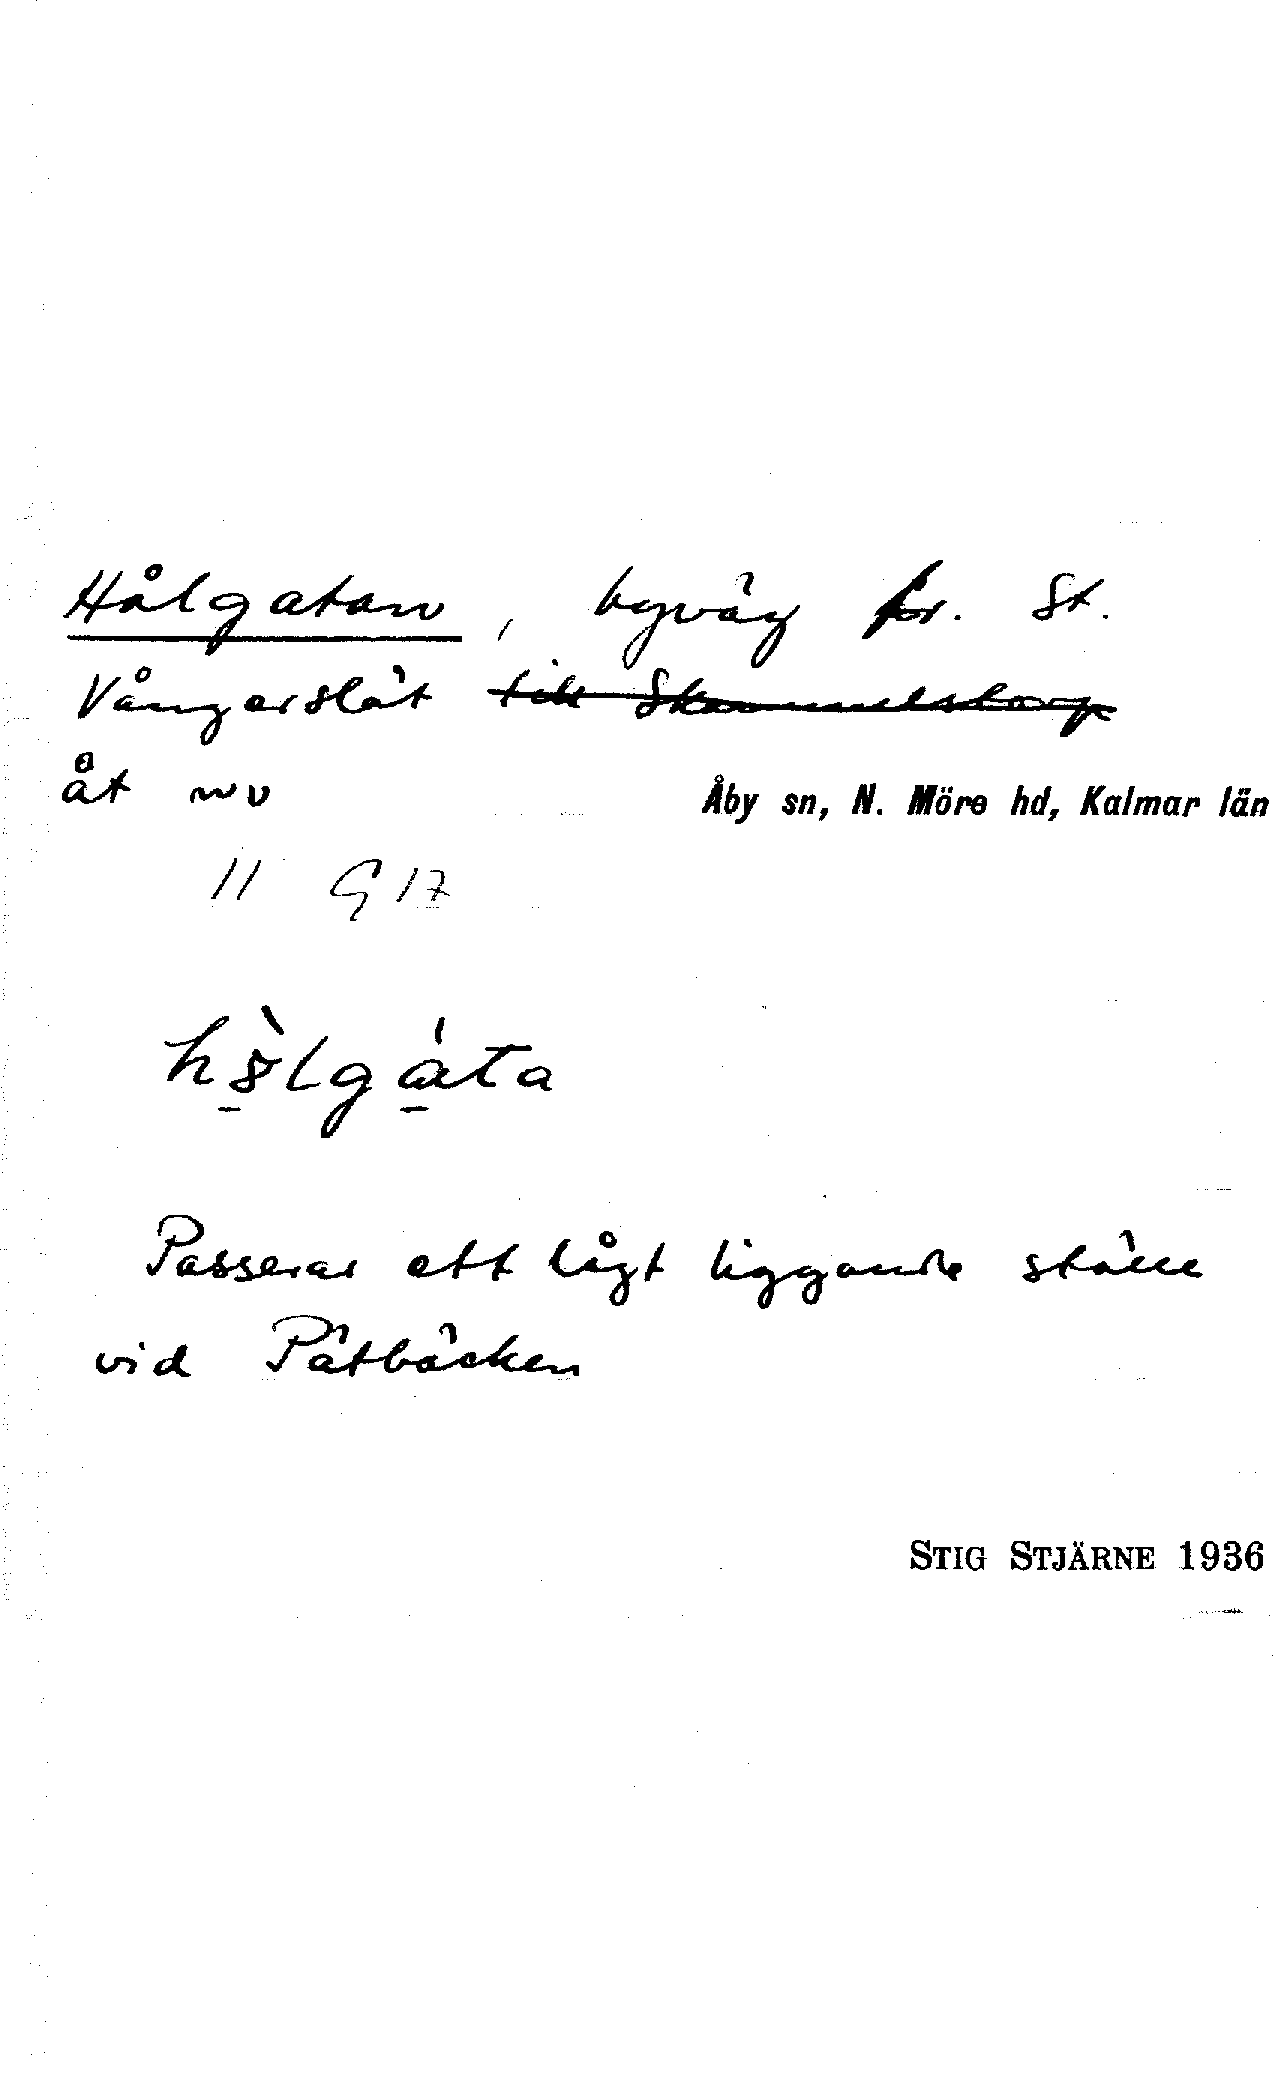 Hålgatan, byväg fr. St.
Vångerslät till Skammelstorp
åt nv
Åby sn, N. Möre hd, Kalmar län
11 G 17
hålgata
Passerar ett lågt liggande ställe
vid Påtbäcken
STIG STJÄRNE 1936